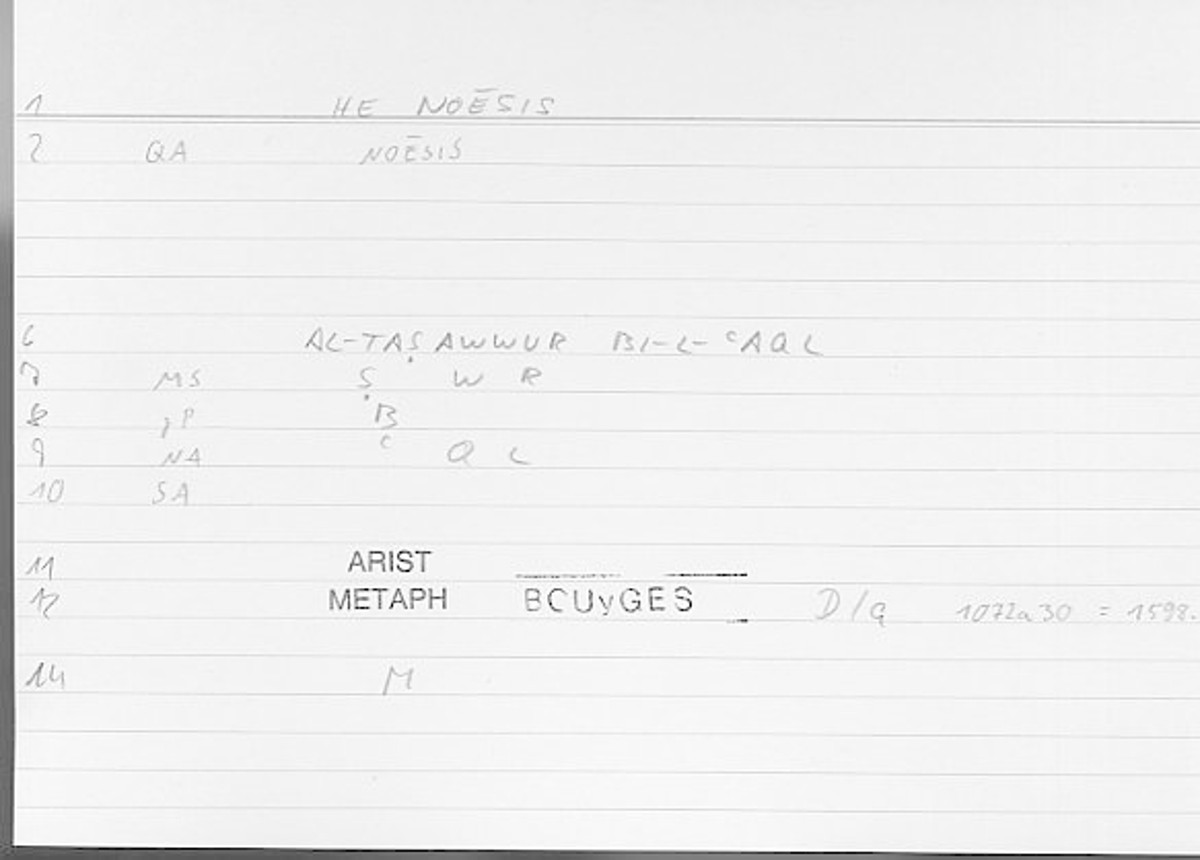 1 HE NOĒSIS
2 QA NOĒSIS
6 AL-TAṢAWWUR BI-L-ʿAQL
7 MS Ṣ W R
8 ȷP B
9 NA ʿ Q L
10 SA
11 ARIST
12 METAPH BOUyGES D/q 1072a30 = 1598.
14 M